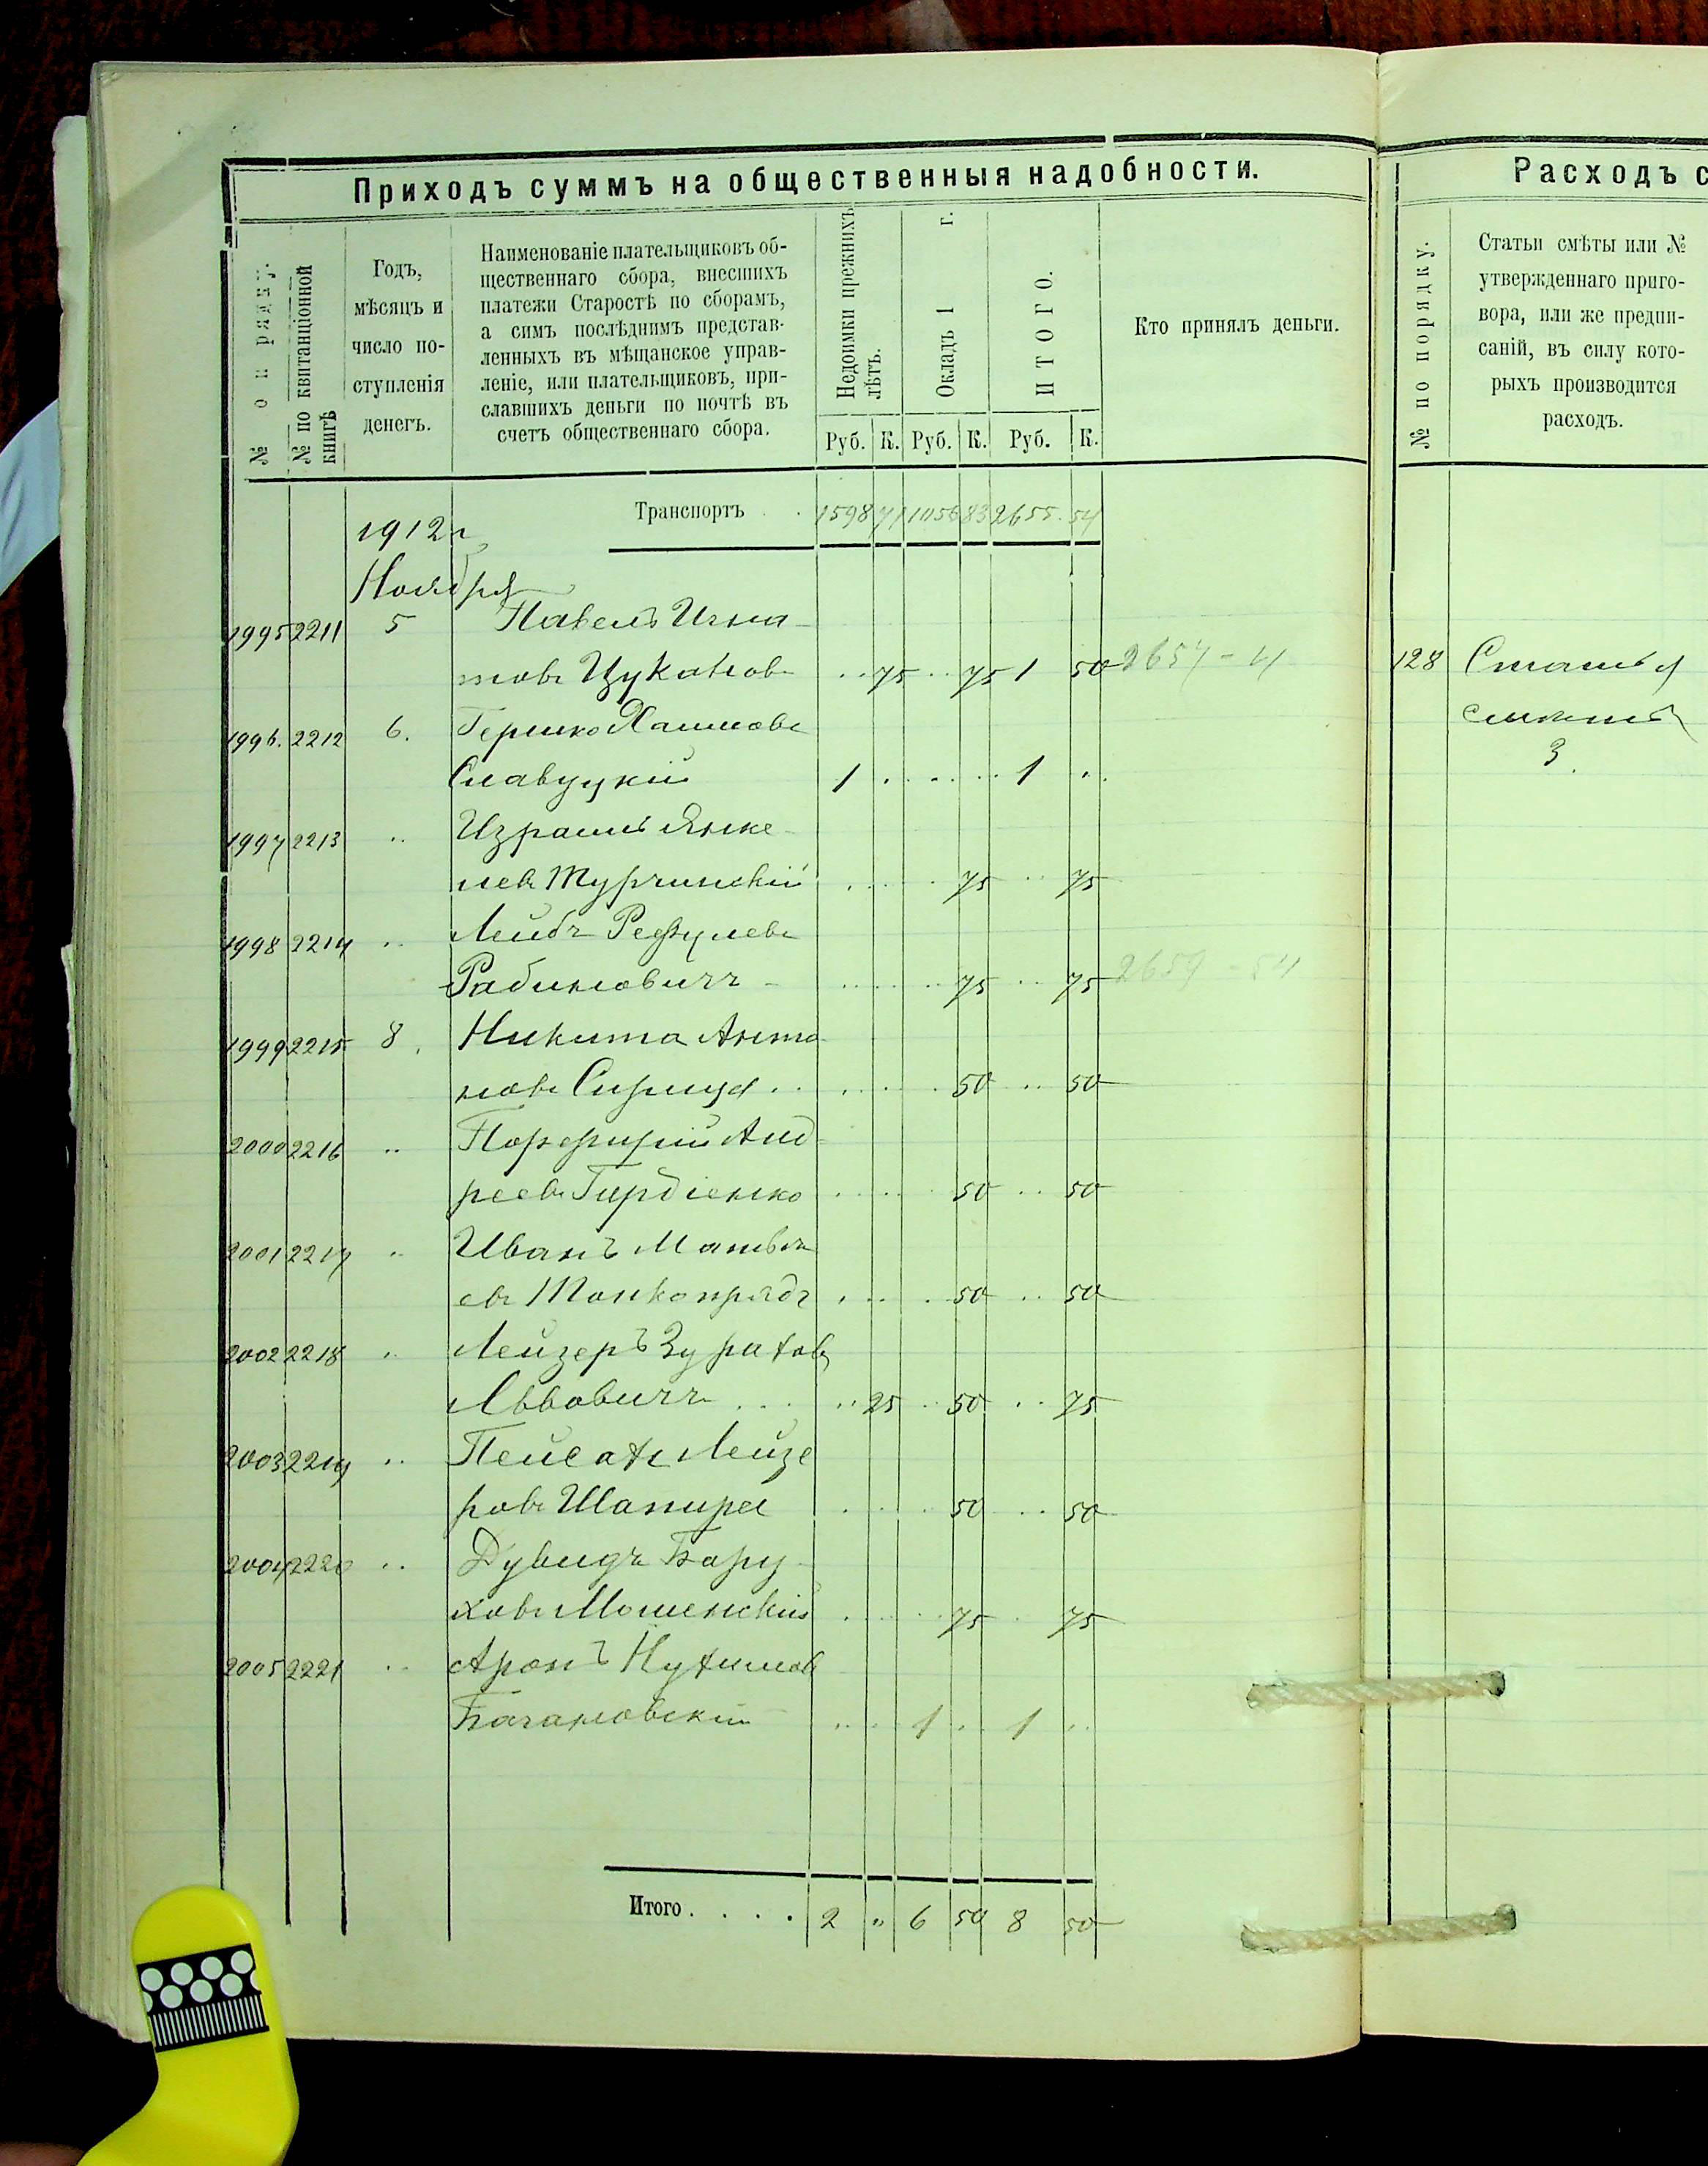 Приходъ суммъ на общественныя надобности.
№ по
№ по квитанціонной книгѣ
Годъ,
мѣсяцъ и
число по-
ступленія
денегъ.
Наименованіе плательщиковъ об-
щественнаго сбора, внесшихъ
платежи Старостѣ по сборамъ,
а симъ послѣднимъ представ-
ленныхъ въ мѣщанское управ-
леніе, или плательщиковъ, при-
славшихъ деньги по почтѣ въ
счетъ общественнаго сбора.
Недоимки прежнихъ
лѣтъ.
Окладъ 1 г.
ИТОГО.
Руб. К. Руб. К. Руб. К.
Кто принялъ деньги.
Транспортъ . . 1598 71 1056 83 2655 54
1912 г
Ноября
1995 2211 5 Павелъ Игна-
товъ Цукановъ .. 75 .. 75 1 50 2657 - 4
1996. 2212 6. Гершко Хаимовъ
Славуцкій 1 . . . . . 1 ..
1997 2213 .. Израиль Янке-
левъ Турчинскій . . . . 75 .. 75
1998 2214 .. Лейбъ Рефулевъ
Рабиновичъ - . . . . 75 .. 75 2659 - 54
1999 2215 8. Никита Анто-
новъ Сирица .. . . . . 50 .. 50
2000 2216 .. Порфирій Анд-
реевъ Гирдіенко . . . . 50 .. 50
2001 2217 .. Иванъ Матвѣ-
евъ Тонкопрядъ . . . . 50 .. 50
2002 2218 .. Лейзеръ
Львовичъ . . . .. 25 . 50 .. 75
2003 2219 .. Пейсахъ Лейзе
ровъ Шапиро . . . . 50 .. 50
2004 2220 .. Дувидъ Бару-
ховъ Мошенскій . . . . 75 . 75
2005 2221 .. Аронъ Нухимовъ
Багановскій . . . 1 . 1 ..
Итого. . . . 2 " 6 50 8 50
Расходъ с
№ по порядку.
Статьи смѣты или №
утвержденнаго приго-
вора, или же предпи-
саній, въ силу кото-
рыхъ производится
расходъ.
128 Статья
смѣты
3.